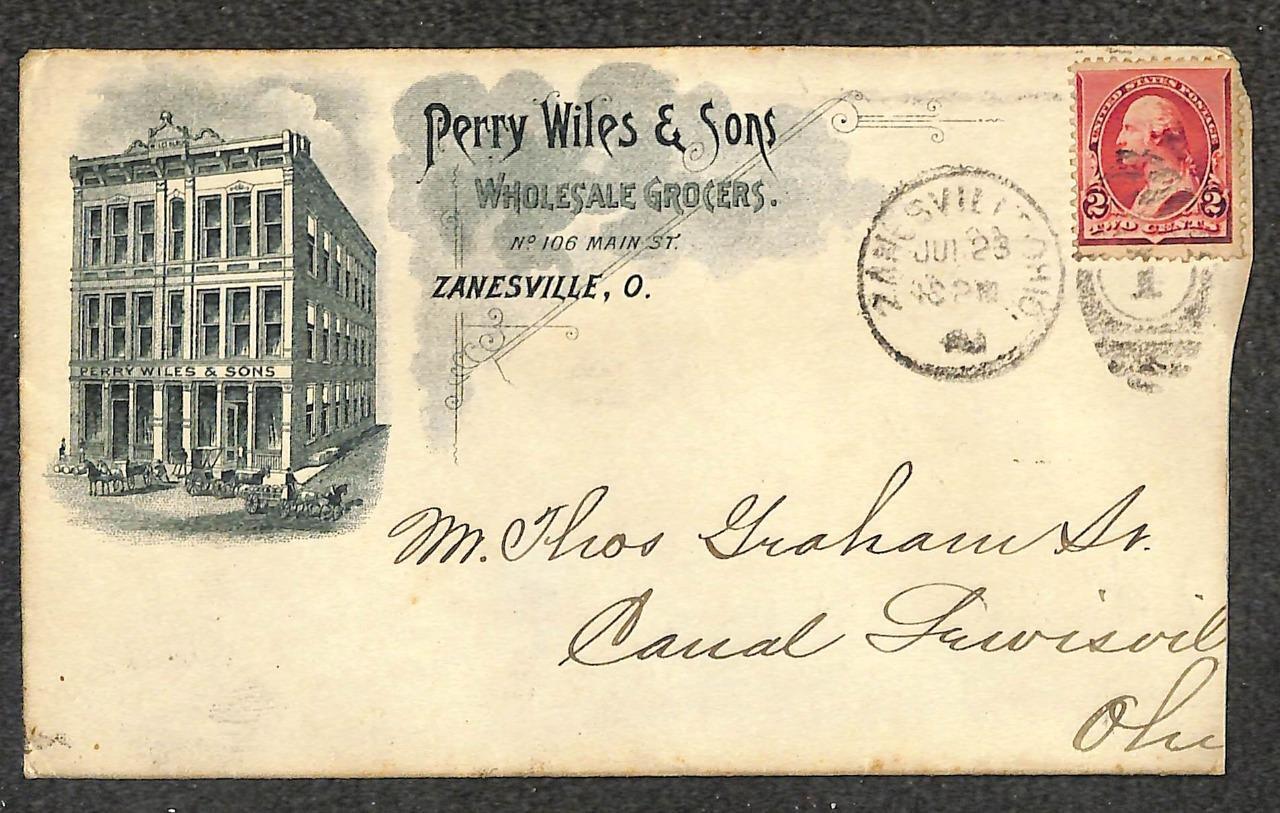 Perry Wiles & Sons
WHOLESALE GROCERS.
Nº 106 MAIN ST.
ZANESVILLE, O.
PERRY WILES & SONS
UNITED STATES POSTAGE
2 2
TWO CENTS
ZANESVILLE OHIO.
JUL 23
PM
1
Mr. Thos Graham Sr.
Canal Lewisvil
Ohi